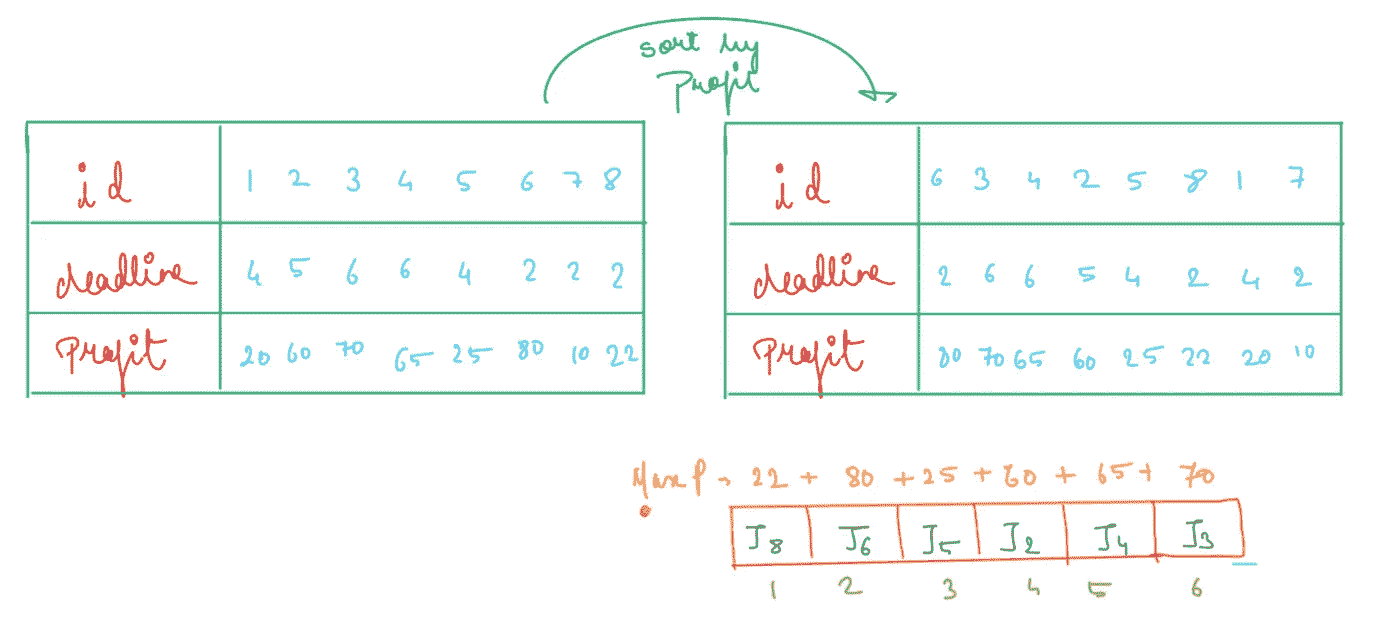 sort by
Profit
id 1 2 3 4 5 6 7 8
deadline 4 5 6 6 4 2 2 2
Profit 20 60 70 65 25 80 10 22
id 6 3 4 2 5 8 1 7
deadline 2 6 6 5 4 2 4 2
Profit 80 70 65 60 25 22 20 10
Max P → 22 + 80 + 25 + 60 + 65 + 70
J8 J6 J5 J2 J4 J3
1 2 3 4 5 6